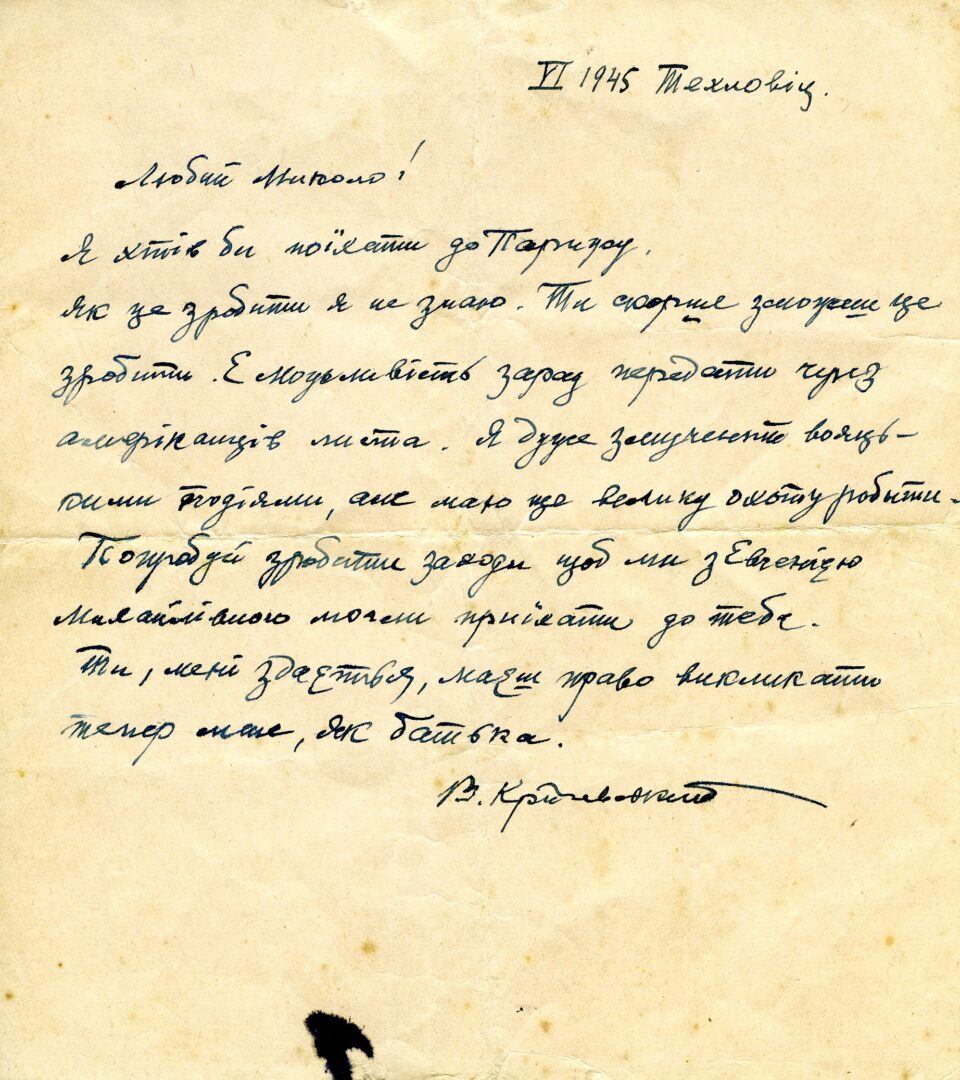 VI 1945 Техловіц.
Любий Миколо!
Я хтів би поїхати до Парижу.
Як це зробити я не знаю. Ти скорше зможеш це
зробити. Є можливість зараз передати через
амеріканців листа. Я дуже змучений вояць-
кими подіями, але маю ще велику охоту робити.
Попробуй зробити заходи щоб ми з Евгенією
Михайлівною могли приїхати до тебе.
Ти, мені здається, маєш право викликати
тепер мене, як батька.
В. Кричевський